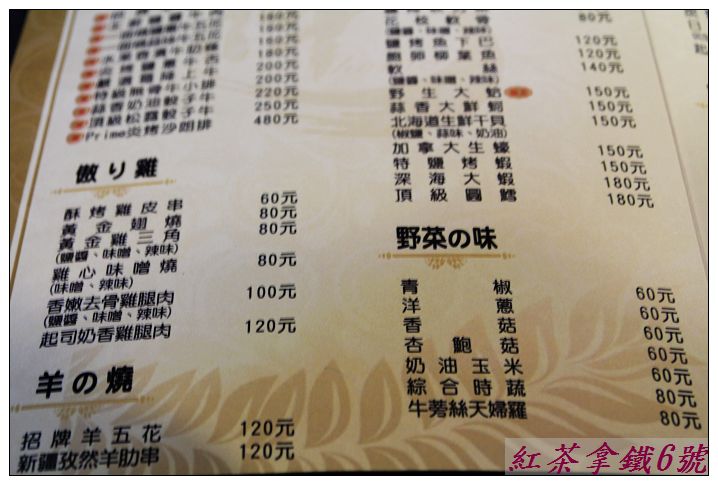 180元
180元
180元
200元
200元
220元
250元
Prime炎烤沙朗排 480元
傲り雞
酥烤雞皮串 60元
黃金翅燒 80元
黃金雞三角 80元
(鹽醬、味噌、辣味)
雞心味噌燒 80元
(味噌、辣味)
香嫩去骨雞腿肉 100元
(鹽醬、味噌、辣味)
起司奶香雞腿肉 120元
羊の燒
招牌羊五花 120元
新疆孜然羊肋串 120元
花枝軟骨 80元
(鹽醬、味噌、辣味)
鹽烤魚下巴 120元
飽卵柳葉魚 120元
軟絲 140元
(鹽醬、味噌、辣味)
野生大蛤 150元
蒜香大鮮蚵 150元
北海道生鮮干貝 150元
(椒鹽、蒜味、奶油)
加拿大生蠔 150元
特鹽烤蝦 150元
深海大蝦 180元
頂級圓鱈 180元
野菜の味
青椒 60元
洋蔥 60元
香菇 60元
杏鮑菇 60元
奶油玉米 60元
綜合時蔬 80元
牛蒡絲天婦羅 80元
紅茶拿鐵6號